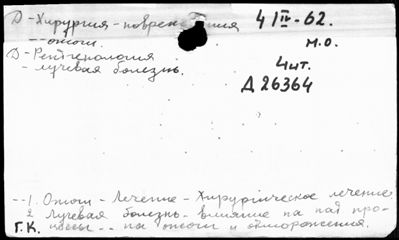 Д - Хирургия - повреждения 4 IV-62.
-- ожоги. м.о.
Д - Рентгенология 4 шт.
- лучевая болезнь. Д 26364
-- 1. Ожоги - Лечение - Хирургическое лечение
2 Лучевая болезнь - влияние на пат про-
Г.К. цессы -- на ожоги и обморожения.